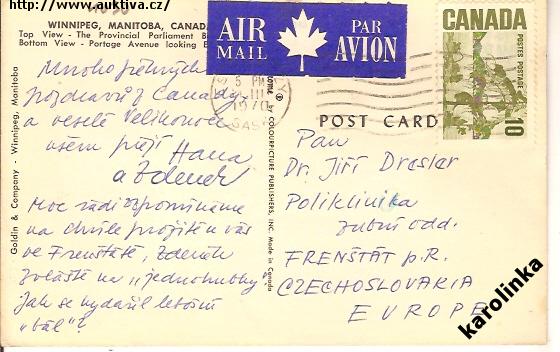 http://www.auktiva.cz/
WINNIPEG, MANITOBA, CANADA.
Top View - The Provincial Parliament B
Bottom View - Portage Avenue looking E
AIR MAIL
PAR AVION
CANADA
POSTES POSTAGE
10
5 PM
III
1970
SAS
Mnoho pěkných
pozdravů z Canady
a veselé Velikonoce
všem přejí Hana
a Zdeněk
Moc rádi vzpomínáme
na chvíle prožité u vás
ve Frenštátě, Zdeněk
zvláště na "jednohubky".
Jak se vydařil letošní
"bál"?
Goldin & Company - Winnipeg, Manitoba
by COLOURPICTURE PUBLISHERS, INC. Made in Canada
POST CARD
Pan
Dr. Jiří Dresler
Poliklinika
zubní odd.
FRENŠTÁT p.R.
CZECHOSLOVAKIA
EUROPE
karolinka